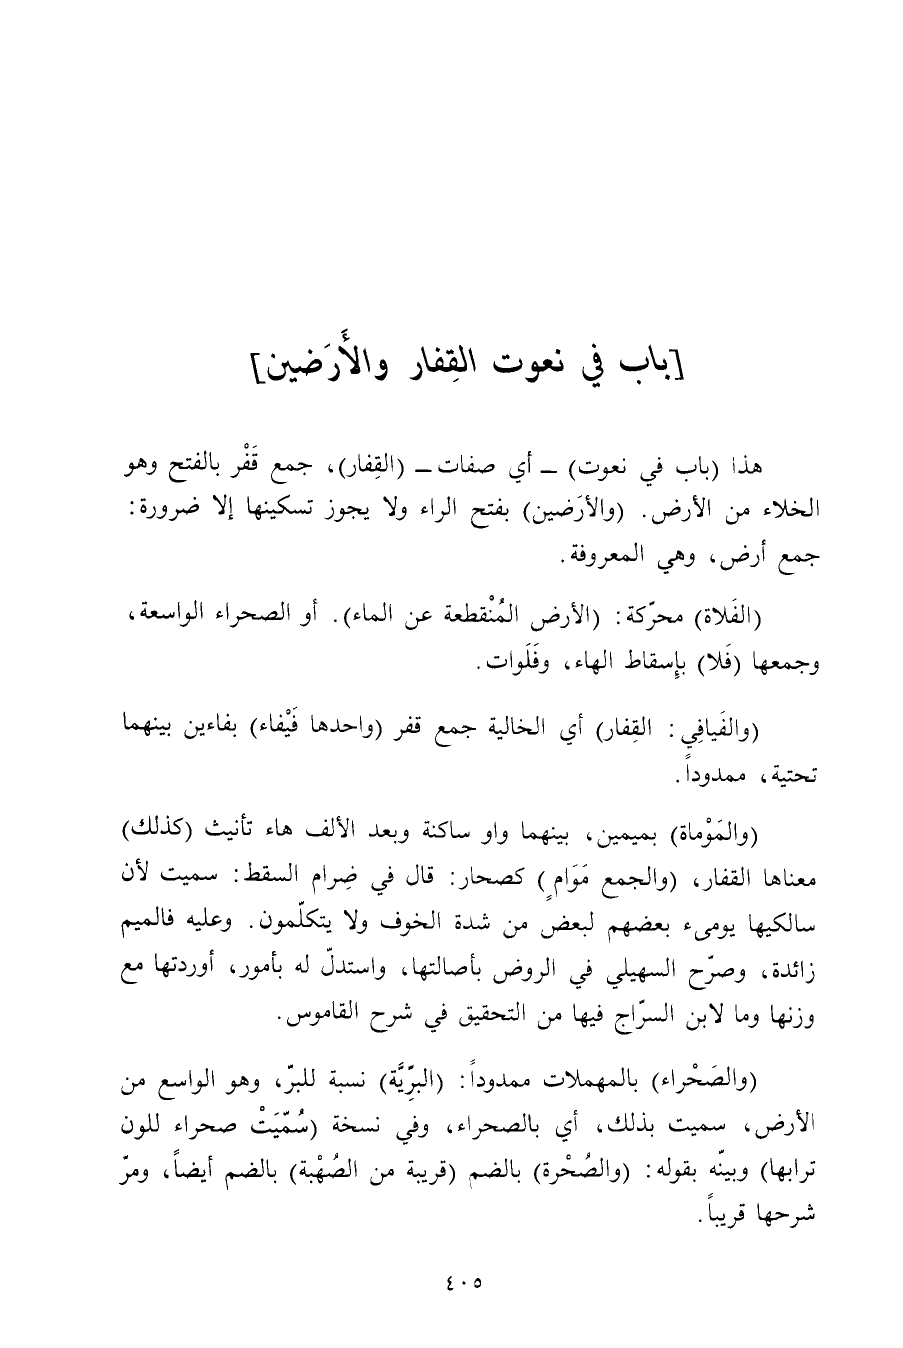 [باب في نعوت القِفار والأَرَضين]
هذا (باب في نعوت) ــ أي صفات ــ (القِفار)، جمع قَفْر بالفتح وهو
الخلاء من الأرض. (والأرَضين) بفتح الراء ولا يجوز تسكينها إلا ضرورة:
جمع أرض، وهي المعروفة.
(الفَلاة) محرّكة: (الأرض المُنْقطعة عن الماء). أو الصحراء الواسعة،
وجمعها (فَلا) بإسقاط الهاء، وفَلَوات.
(والفَيافِي: القِفار) أي الخالية جمع قفر (واحدها فَيْفاء) بفاءين بينهما
تحتية، ممدوداً.
(والمَوْماة) بميمين، بينهما واو ساكنة وبعد الألف هاء تأنيث (كذلك)
معناها القفار، (والجمع مَوَامٍ) كصحار: قال في ضِرام السقط: سميت لأن
سالكيها يومىء بعضهم لبعض من شدة الخوف ولا يتكلّمون. وعليه فالميم
زائدة، وصرّح السهيلي في الروض بأصالتها، واستدلّ له بأمور، أوردتها مع
وزنها وما لابن السرّاج فيها من التحقيق في شرح القاموس.
(والصَحْراء) بالمهملات ممدوداً: (البرِّيَّة) نسبة للبرّ، وهو الواسع من
الأرض، سميت بذلك، أي بالصحراء، وفي نسخة (سُمّيَتْ صحراء للون
ترابها) وبينّه بقوله: (والصُحْرة) بالضم (قريبة من الصُهْبة) بالضم أيضاً، ومرّ
شرحها قريباً.
٤٠٥